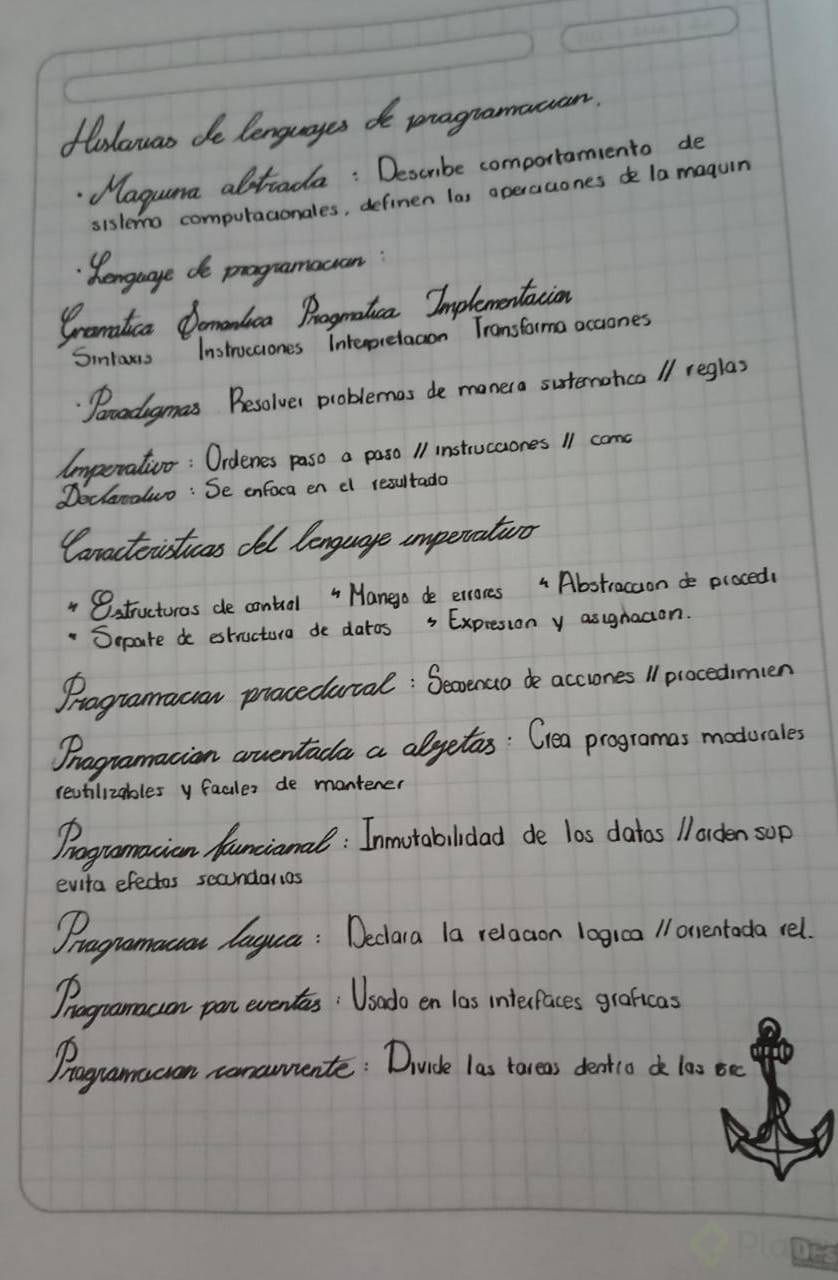 Historias de lenguajes de programacion.
· Maquina abstracta : Describe comportamiento de
sistema computacionales, definen las operaciones de la maquin
· Lenguaje de programacion :
Gramatica Semantica Pragmatica Implementacion
Sintaxis Instrucciones Interpretacion Transforma acciones
· Paradigmas Resolver problemas de manera sistematica // reglas
Imperativo : Ordenes paso a paso // instrucciones // como
Declarativo : Se enfoca en el resultado
Caracteristicas del lenguaje imperativo
" Estructuras de control " Manejo de errores " Abstraccion de procedi
" Soporte de estructura de datos " Expresion y asignacion.
Programacion procedural : Secuencia de acciones // procedimien
Programacion orientada a objetos : Crea programas modurales
reutilizables y faciles de mantener
Programacion funcional : Inmutabilidad de los datos // orden sup
evita efectos secundarios
Programacion logica : Declara la relacion logica // orientada rel.
Programacion por eventos : Usado en las interfaces graficas
Programacion concurrente : Divide las tareas dentro de las